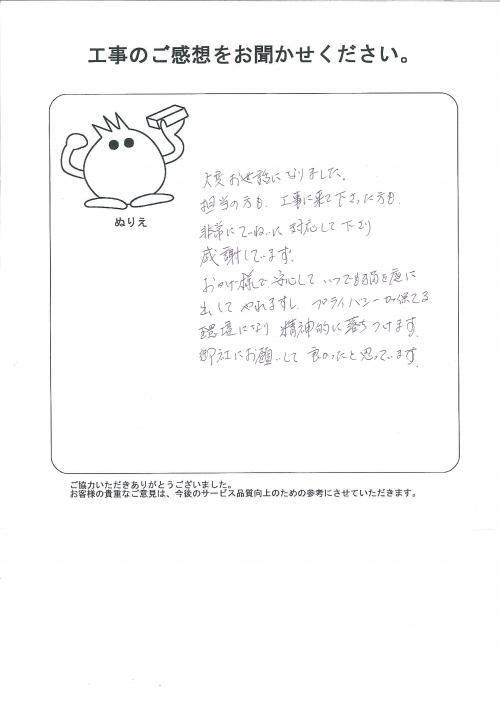 工事のご感想をお聞かせください。
ぬりえ
大変お世話になりました。
担当の方も、工事に来て下さった方も、
非常にていねいに対応して下さり
感謝しています。
おかげ様で安心していつでも を庭に
出してやれますし、プライバシーが保てる
環境になり精神的に落ちつけます。
御社にお願いして良かったと思っています。
ご協力いただきありがとうございました。
お客様の貴重なご意見は、今後のサービス品質向上のための参考にさせていただきます。